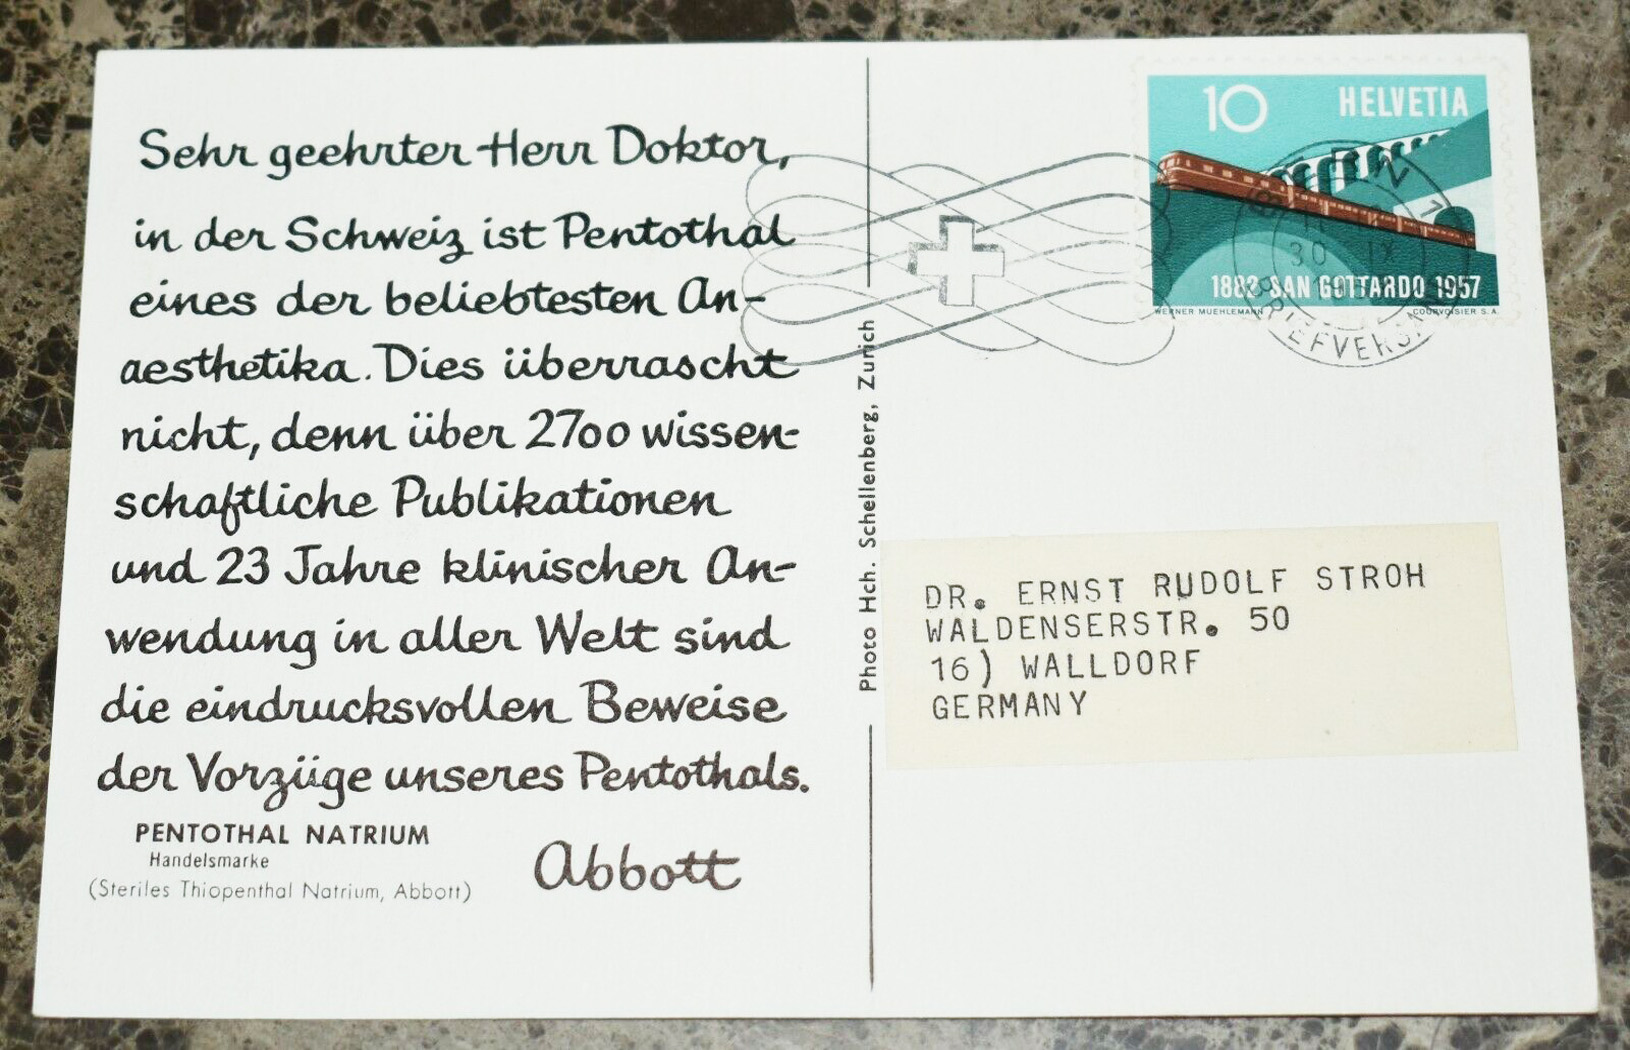 Sehr geehrter Herr Doktor,
in der Schweiz ist Pentothal
eines der beliebtesten An-
aesthetika. Dies überrascht
nicht, denn über 2700 wissen-
schaftliche Publikationen
und 23 Jahre klinischer An-
wendung in aller Welt sind
die eindrucksvollen Beweise
der Vorzüge unseres Pentothals.
PENTOTHAL NATRIUM
Handelsmarke
(Steriles Thiopenthal Natrium, Abbott)
Abbott
Photo Hch. Schellenberg, Zurich
10 HELVETIA
1882 SAN GOTTARDO 1957
WERNER MUEHLEMANN COURVOISIER S.A.
30 IX
BRIEFVERSAND
DR. ERNST RUDOLF STROH
WALDENSERSTR. 50
16) WALLDORF
GERMANY